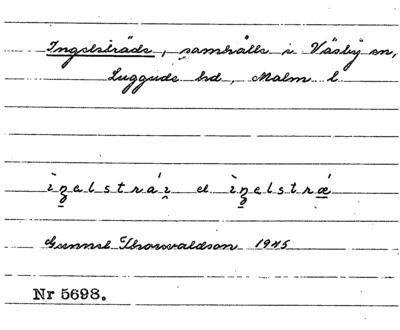 Ingelsträde, samhälle i Väsby sn,
Luggude hd, Malm l
ìŋalstrái̯ el ìŋelstrǽ
Gunnel Thorwaldson 1945
Nr 5698.